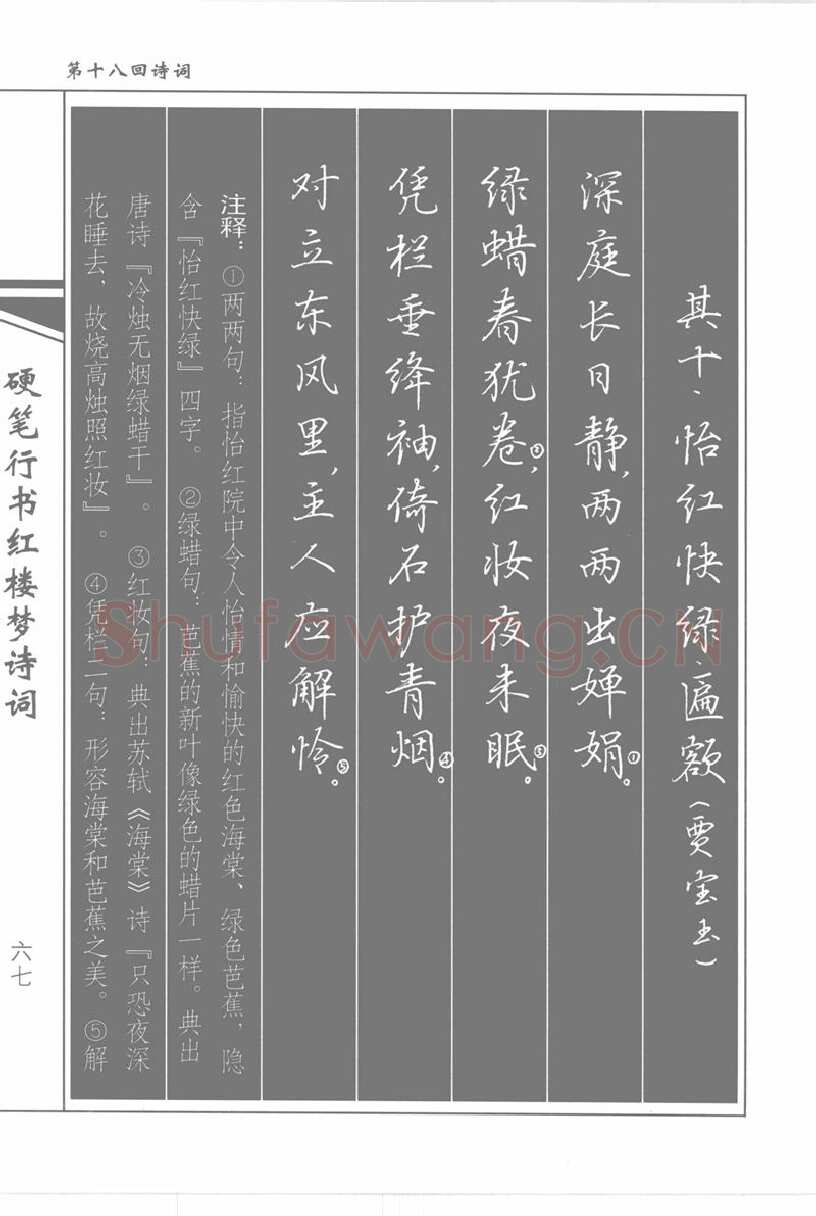 第十八回诗词
其十、怡红快绿·匾额(贾宝玉)
深庭长日静,两两出婵娟①。
绿蜡春犹卷②,红妆夜未眠③。
凭栏垂绛袖,倚石护青烟④。
对立东风里,主人应解怜⑤。
注释:①两两句:指怡红院中令人怡情和愉快的红色海棠、绿色芭蕉,隐
含『怡红快绿』四字。②绿蜡句:芭蕉的新叶像绿色的蜡片一样。典出
唐诗『冷烛无烟绿蜡干』。③红妆句:典出苏轼《海棠》诗『只恐夜深
花睡去,故烧高烛照红妆』。④凭栏二句:形容海棠和芭蕉之美。⑤解
硬笔行书红楼梦诗词
六七
Shufawang.CN